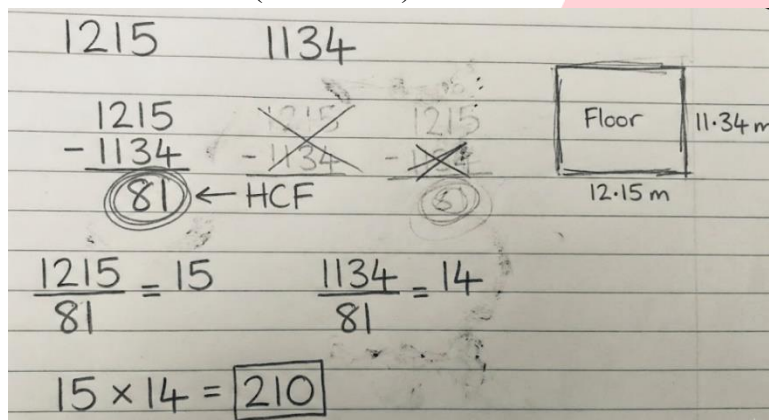 1215 1134
1215
- 1134
81 ← HCF
1215
- 1134
1215
-
81
Floor
11.34 m
12.15 m
1215 / 81 = 15
1134 / 81 = 14
15 × 14 = 210